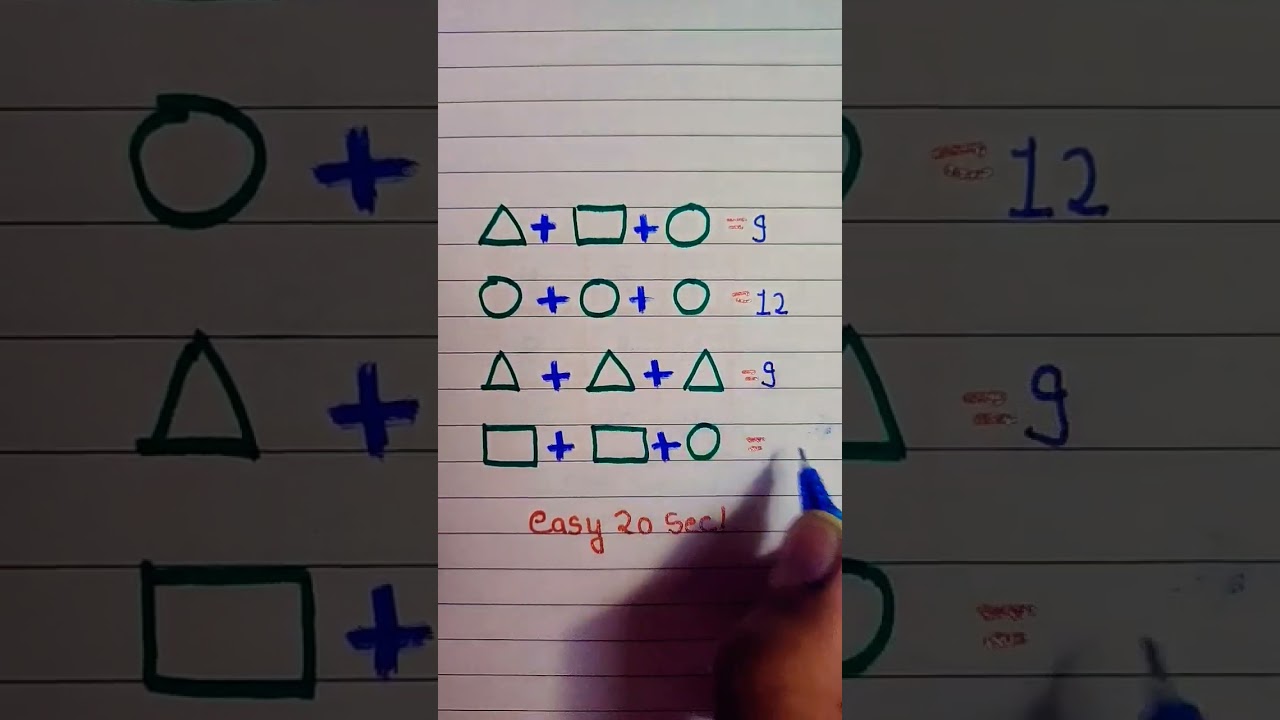 △ + □ + ○ = 9
○ + ○ + ○ = 12
△ + △ + △ = 9
□ + □ + ○ =
Easy 20 Sec!